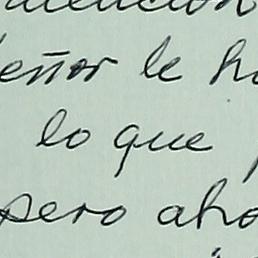 señor le ha
lo que
pero aho